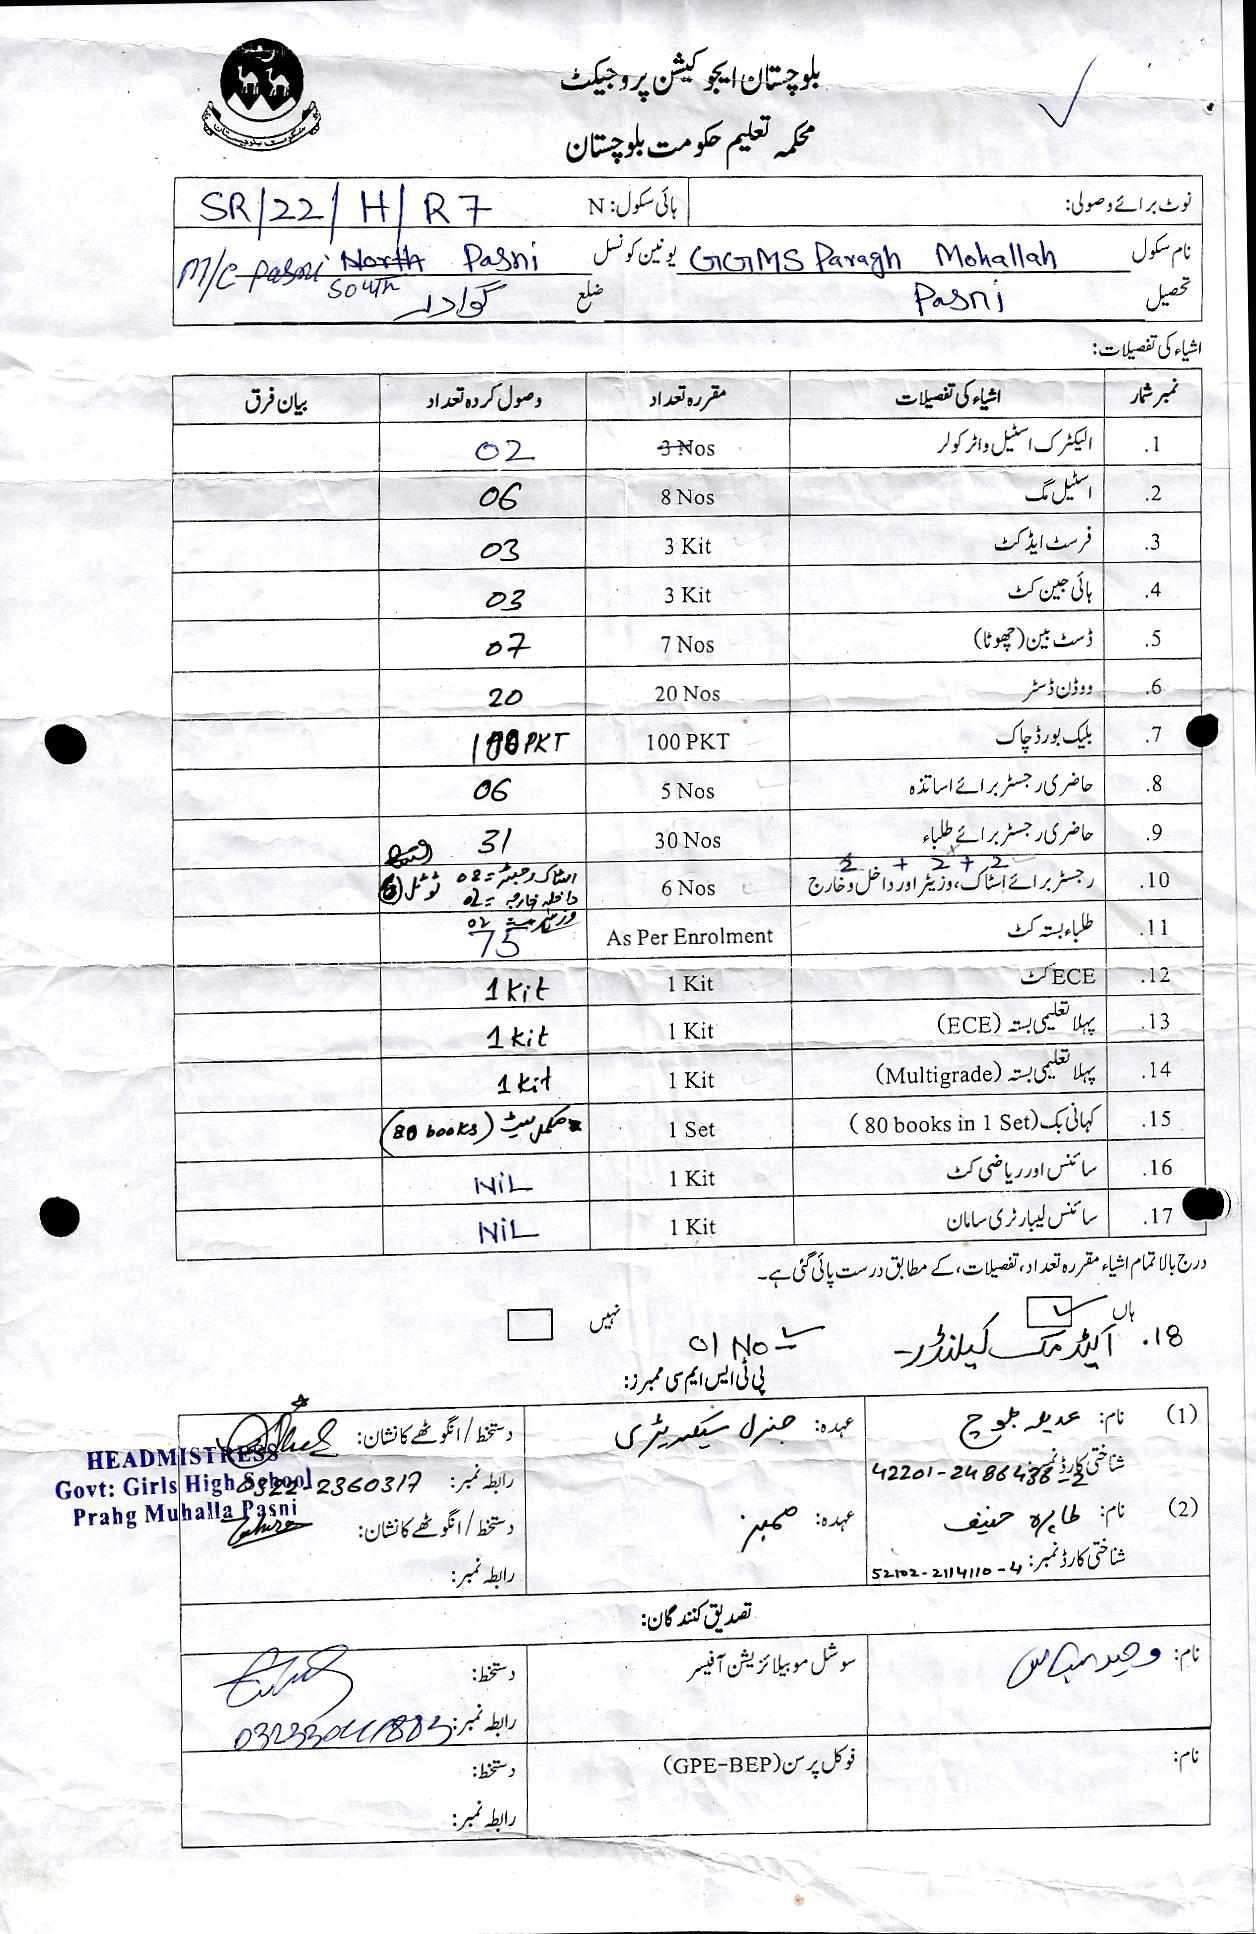 بلوچستان ایجوکیشن پروجیکٹ
محکمہ تعلیم حکومت بلوچستان
نوٹ برائے وصولی: ہائی سکول: N SR/22/H/R7
نام سکول GGMS Paragh Mohallah یونین کونسل M/C Pasni North Pasni
South
تحصیل Pasni ضلع گوادر
اشیاء کی تفصیلات:
نمبر شمار اشیاء کی تفصیلات مقررہ تعداد وصول کردہ تعداد بیان فرق
1. الیکٹرک اسٹیل واٹر کولر 3 Nos 02
2. اسٹیل مگ 8 Nos 06
3. فرسٹ ایڈ کٹ 3 Kit 03
4. ہائی جین کٹ 3 Kit 03
5. ڈسٹ بین (چھوٹا) 7 Nos 07
6. ووڈن ڈسٹر 20 Nos 20
7. بلیک بورڈ چاک 100 PKT 100 PKT
8. حاضری رجسٹر برائے اساتذہ 5 Nos 06
9. حاضری رجسٹر برائے طلباء 30 Nos 31
2 + 2 + 2
10. رجسٹر برائے اسٹاک، وزیٹر اور داخل و خارج 6 Nos اسٹاک رجسٹر = 02 ٹوٹل 6
داخلہ خارجہ = 02
02
11. طلباء بستہ کٹ As Per Enrolment 75
12. ECE کٹ 1 Kit 1 Kit
13. پہلا تعلیمی بستہ (ECE) 1 Kit 1 Kit
14. پہلا تعلیمی بستہ (Multigrade) 1 Kit 1 Kit
15. کہانی بک (80 books in 1 Set) 1 Set مکمل سیٹ (80 books)
16. سائنس اور ریاضی کٹ 1 Kit NiL
17. سائنس لیبارٹری سامان 1 Kit NiL
درج بالا تمام اشیاء مقررہ تعداد، تفصیلات، کے مطابق درست پائی گئی ہے۔
ہاں نہیں
18. کیلنڈر 01 No
پی ٹی ایس ایم سی ممبرز:
(1) نام: عدیلہ بلوچ عہدہ: جنرل سیکریٹری دستخط / انگوٹھے کا نشان:
شناختی کارڈ نمبر: 42201-2486438-2 رابطہ نمبر: 0322-2360317
HEADMISTRESS
Govt: Girls High School
Prahg Muhalla Pasni
(2) نام: طاہرہ حنیف عہدہ: ممبر دستخط / انگوٹھے کا نشان:
شناختی کارڈ نمبر: 52102-2114110-4 رابطہ نمبر:
تصدیق کنندگان:
نام: سوشل موبیلائزیشن آفیسر دستخط:
رابطہ نمبر:
نام: فوکل پرسن (GPE-BEP) دستخط:
رابطہ نمبر: